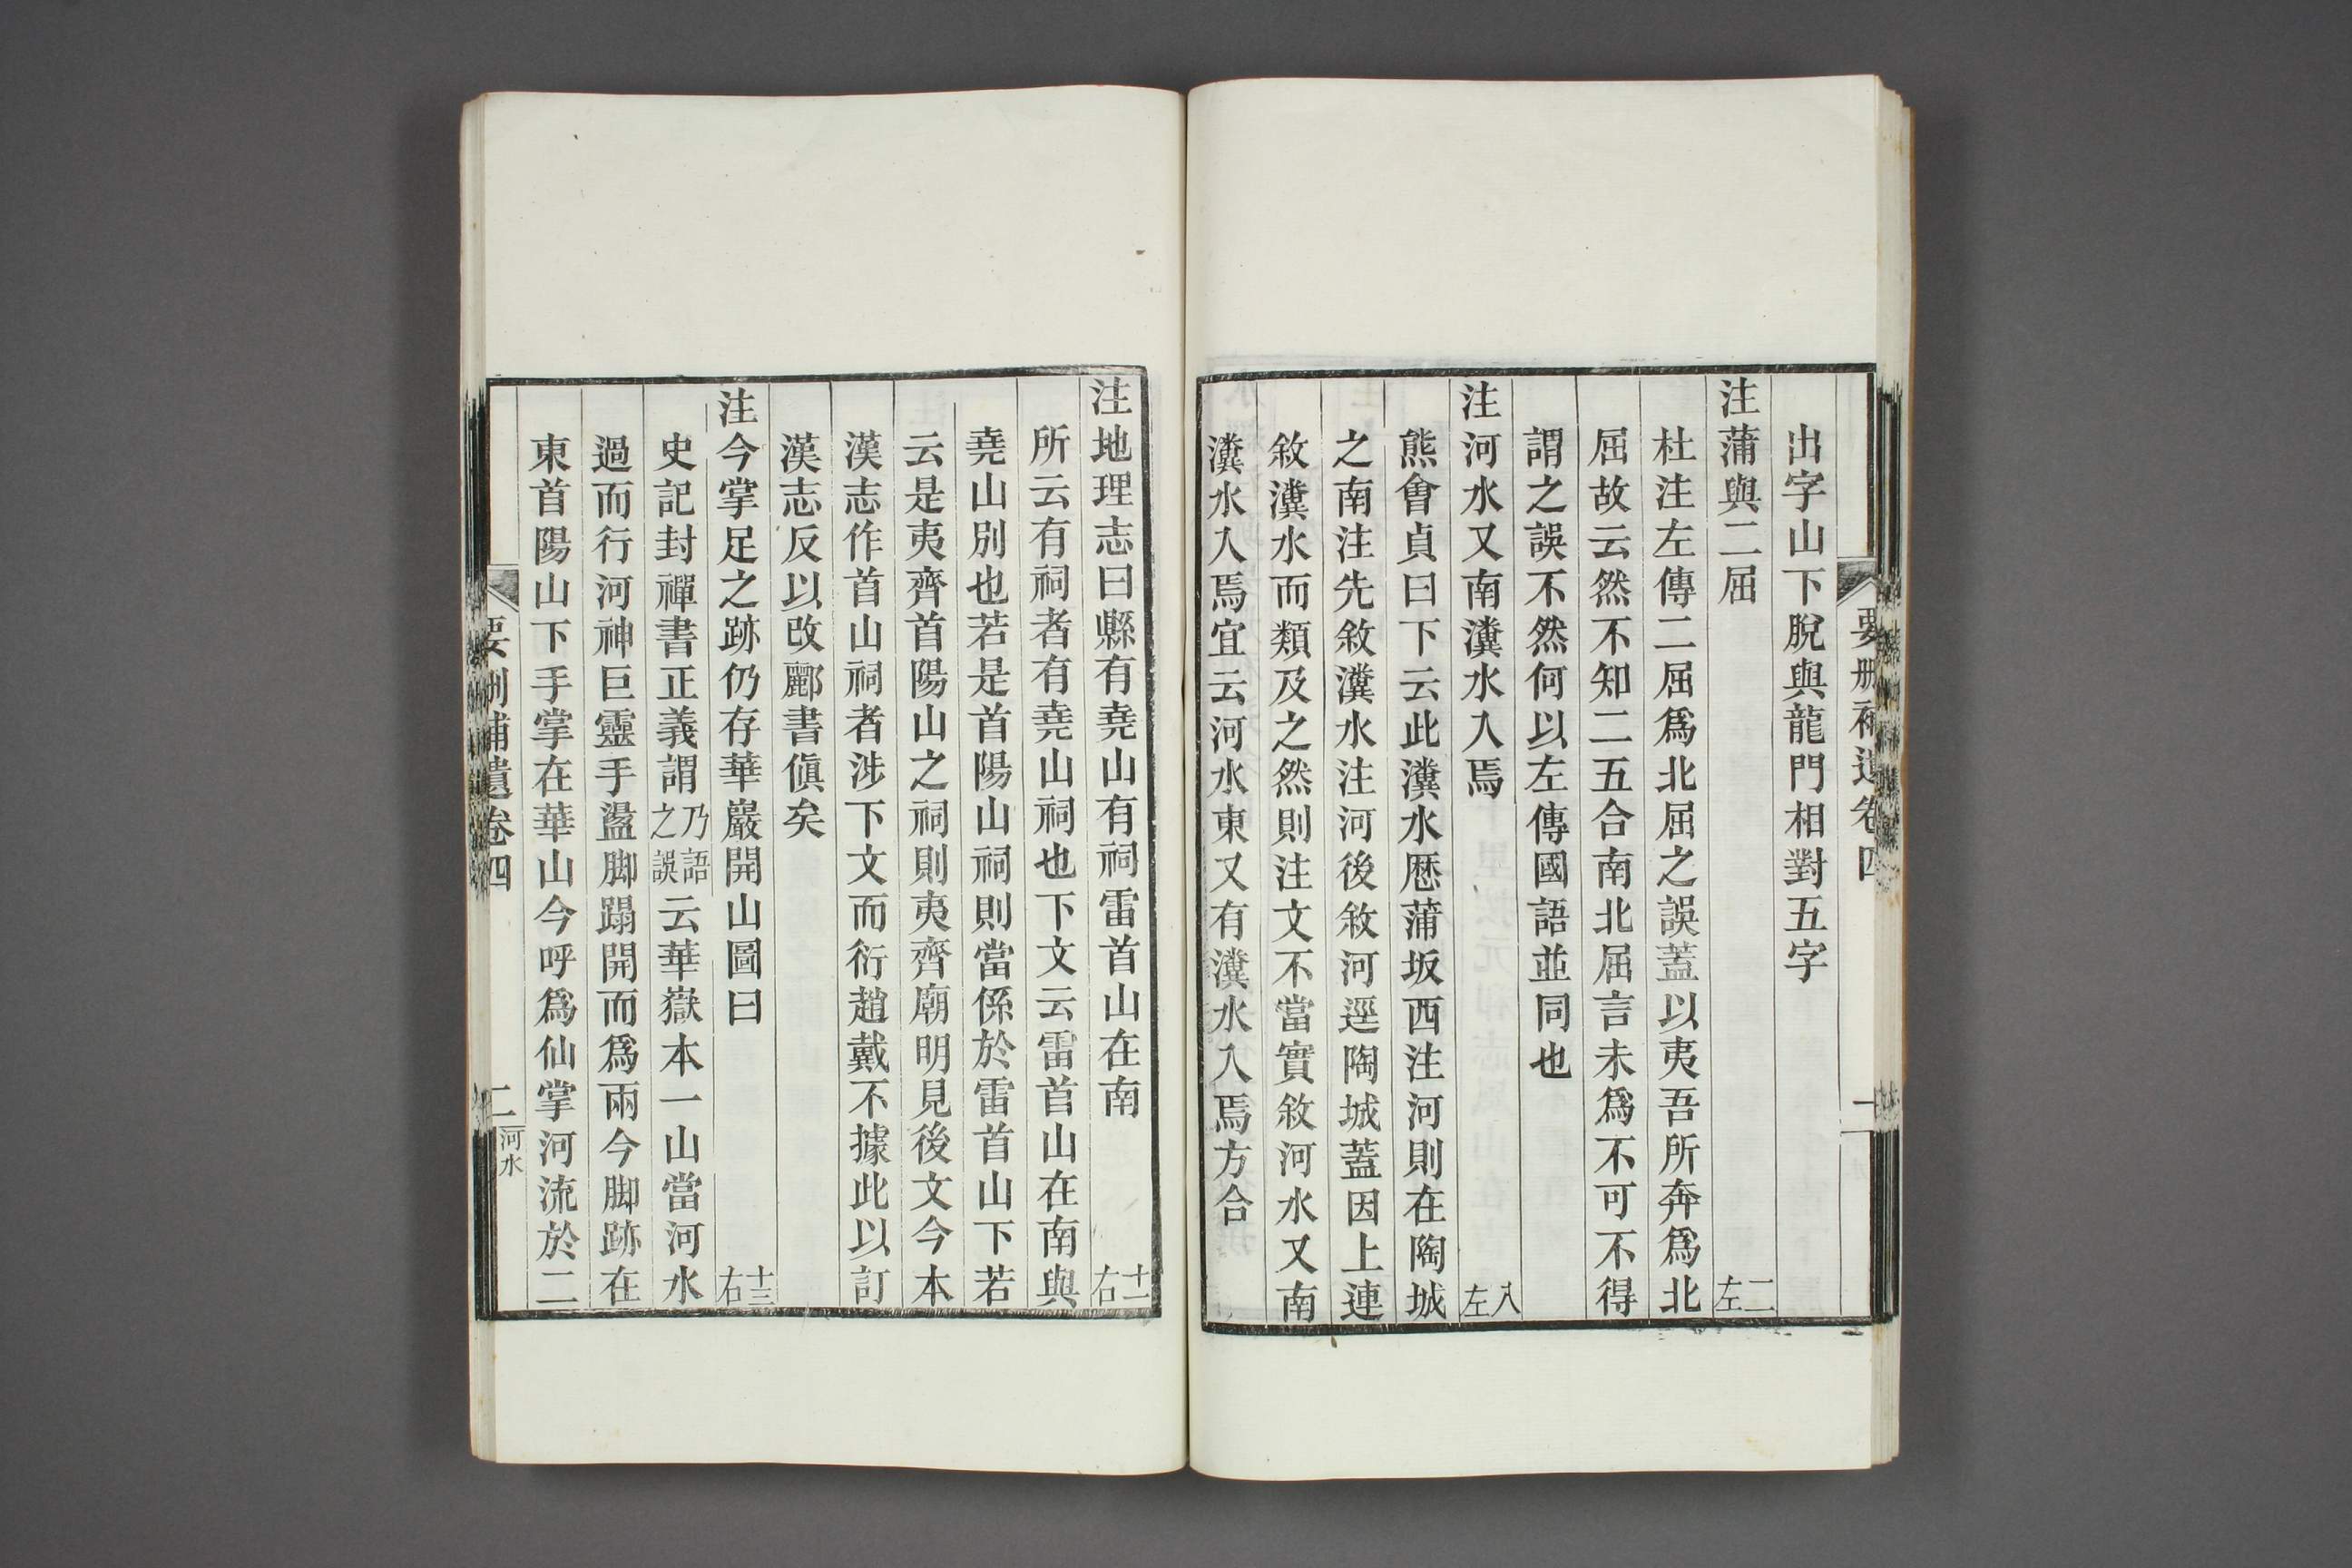 要刪補遺卷四
出字山下脫與龍門相對五字
注蒲與二屈 二左
杜注左傳二屈爲北屈之誤蓋以夷吾所奔爲北
屈故云然不知二五合南北屈言未爲不可不得
謂之誤不然何以左傳國語並同也
注河水又南瀵水入焉 八左
熊會貞曰下云此瀵水歷蒲坂西注河則在陶城
之南注先敘瀵水注河後敘河逕陶城蓋因上連
敘瀵水而類及之然則注文不當實敘河水又南
瀵水入焉宜云河水東又有瀵水入焉方合
注地理志曰縣有堯山有祠雷首山在南 十一右
所云有祠者有堯山祠也下文云雷首山在南與
堯山別也若是首陽山祠則當係於雷首山下若
云是夷齊首陽山之祠則夷齊廟明見後文今本
漢志作首山祠者涉下文而衍趙戴不據此以訂
漢志反以改酈書傎矣
注今掌足之跡仍存華巖開山圖曰 十三右
史記封禪書正義謂乃語之誤云華嶽本一山當河水
過而行河神巨靈手盪脚蹋開而爲兩今脚跡在
東首陽山下手掌在華山今呼爲仙掌河流於二
要刪補遺卷四
二 河水